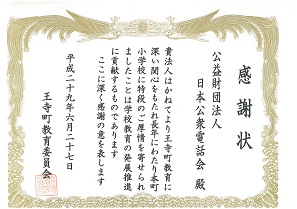 感謝状
公益財団法人
日本公衆電話会 殿
貴法人はかねてより王寺町教育に
深い関心をもたれ長年にわたり本町
小学校に特段のご厚情を寄せられ
ましたことは学校教育の発展推進
に貢献するものであります
ここに深く感謝の意を表します
平成二十九年六月二十七日
王寺町教育委員会